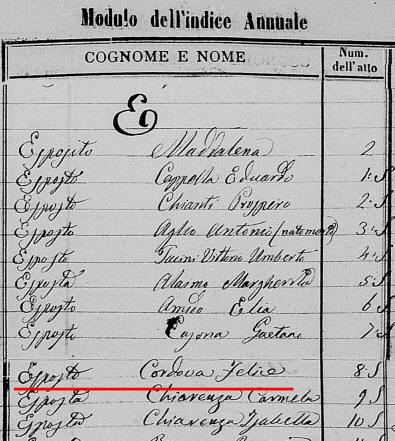 Modulo dell'indice Annuale
COGNOME E NOME Num. dell'atto
E
Esposito Maddalena 2
Esposto Cappella Eduardo 1.S
Esposto Chianti Prospero 2.S
Esposto Aglio Antonio (natomorto) 3.S
Esposto Vittorio Umberto 4.S
Esposta Alasmo Margherita 5.S
Esposto Amleo Elia 6.S
Esposto Gaetano 7.S
Esposto Cordova Felice 8.S
Esposta Chiavenza Carmela 9.S
Esposta Chiavenza Isabella 10.S